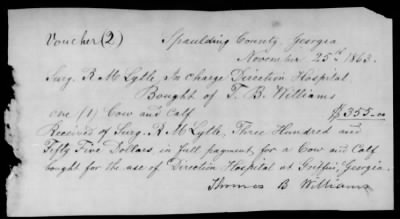 Voucher (2) Spaulding County, Georgia
November 25th 1863.
Surg. R M Lytle, In charge Direction Hospital
Bought of T. B. Williams
one (1) Cow and Calf $355.00
Received of Surg. R. M Lytle, Three Hundred and
Fifty Five Dollars in full payment, for a Cow and Calf
bought for the use of Direction Hospital at Griffin, Georgia.
Thomas B Williams